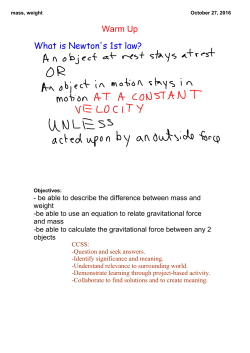 mass, weight
October 27, 2016
Warm Up
What is Newton's 1st law?
An object at rest stays at rest
OR
An object in motion stays in
motion AT A CONSTANT
VELOCITY
UNLESS
acted upon by an outside force
Objectives:
- be able to describe the difference between mass and
weight
-be able to use an equation to relate gravitational force
and mass
-be able to calculate the gravitational force between any 2
objects
CCSS:
-Question and seek answers.
-Identify significance and meaning.
-Understand relevance to surrounding world.
-Demonstrate learning through project-based activity.
-Collaborate to find solutions and to create meaning.